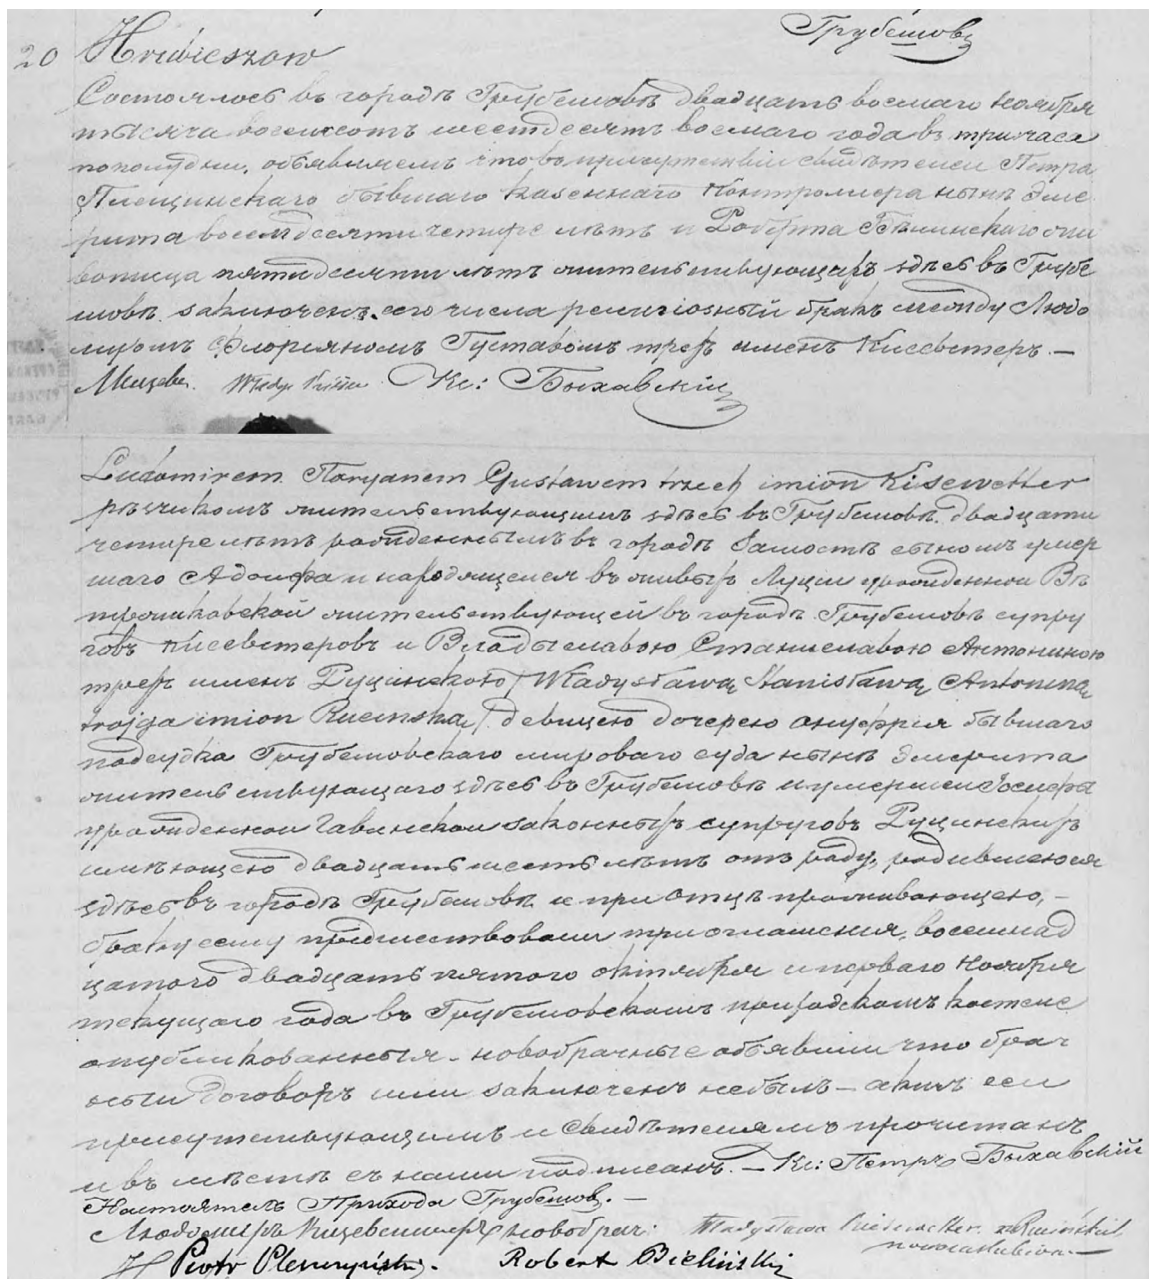 Грубешовъ
20 Hrubieszow
Состоялось въ городѣ Грубешовѣ двадцать восмаго Ноября
тысяча восемсотъ шестдесятъ восмаго года въ три часа
пополудни, объявляемъ что во присутствіи свидѣтелей Петра
Плещинскаго бывшаго казеннаго Контролиера нынѣ Эме
рита восемдесяти четире лѣтъ и Роберта Бѣлинскаго жи
вописца пятидесяти лѣтъ жительствующихъ здѣсь въ Грубе
шовѣ заключенъ сего числа религіозный бракъ между Людо
миромъ Флоріяномъ Густавомъ трехъ именъ Кисеветеръ. —
Кс: Быхавскій
Ludomirem Floryanem Gustawem trzech imion Kisewetter
рѣзчикомъ жительствующимъ здѣсь въ Грубешовѣ двадцати
четире лѣтъ рожденнымъ въ городѣ Замостѣ сыномъ умер
шаго Адольфа и находящейся въ живыхъ Луціи урожденной Вѣ
жительствующей въ городѣ Грубешовѣ супру
говъ Кисеветеровъ и Владыславою Станиславою Антониною
трехъ именъ Руцинскою / Władysławą Stanisławą Antoniną
trojga imion Rucinską / девицею дочерею Онуфрія бывшаго
подсудка Грубешовскаго мироваго суда нынѣ Эмерита
жительствующаго здѣсь въ Грубешовѣ и умершей Іосифы
урожденной Гавинской законныхъ супруговъ Руцинскихъ
имѣющею двадцать шесть лѣтъ отъ роду, родившеюся
здѣсь въ городѣ Грубешовѣ и при отцѣ проживающею, —
браку сему предшествовали три оглашения, восемнад
цатого двадцать пятого октября и перваго Ноября
текущаго года въ Грубешовскомъ приходскомъ костеле
опубликованныя. новобрачные объявили что брач
ный договоръ ими заключенъ небылъ — актъ сей
присутствующимъ и свидѣтелямъ прочитанъ
и въ мѣстѣ съ нами подписанъ. — Кс: Петръ Быхавскій
Настоятель Прихода Грубешов. —
Людомиръ Кицеветтеръ новобрач:
Piotr Pleszczyński. Robert Bieliński